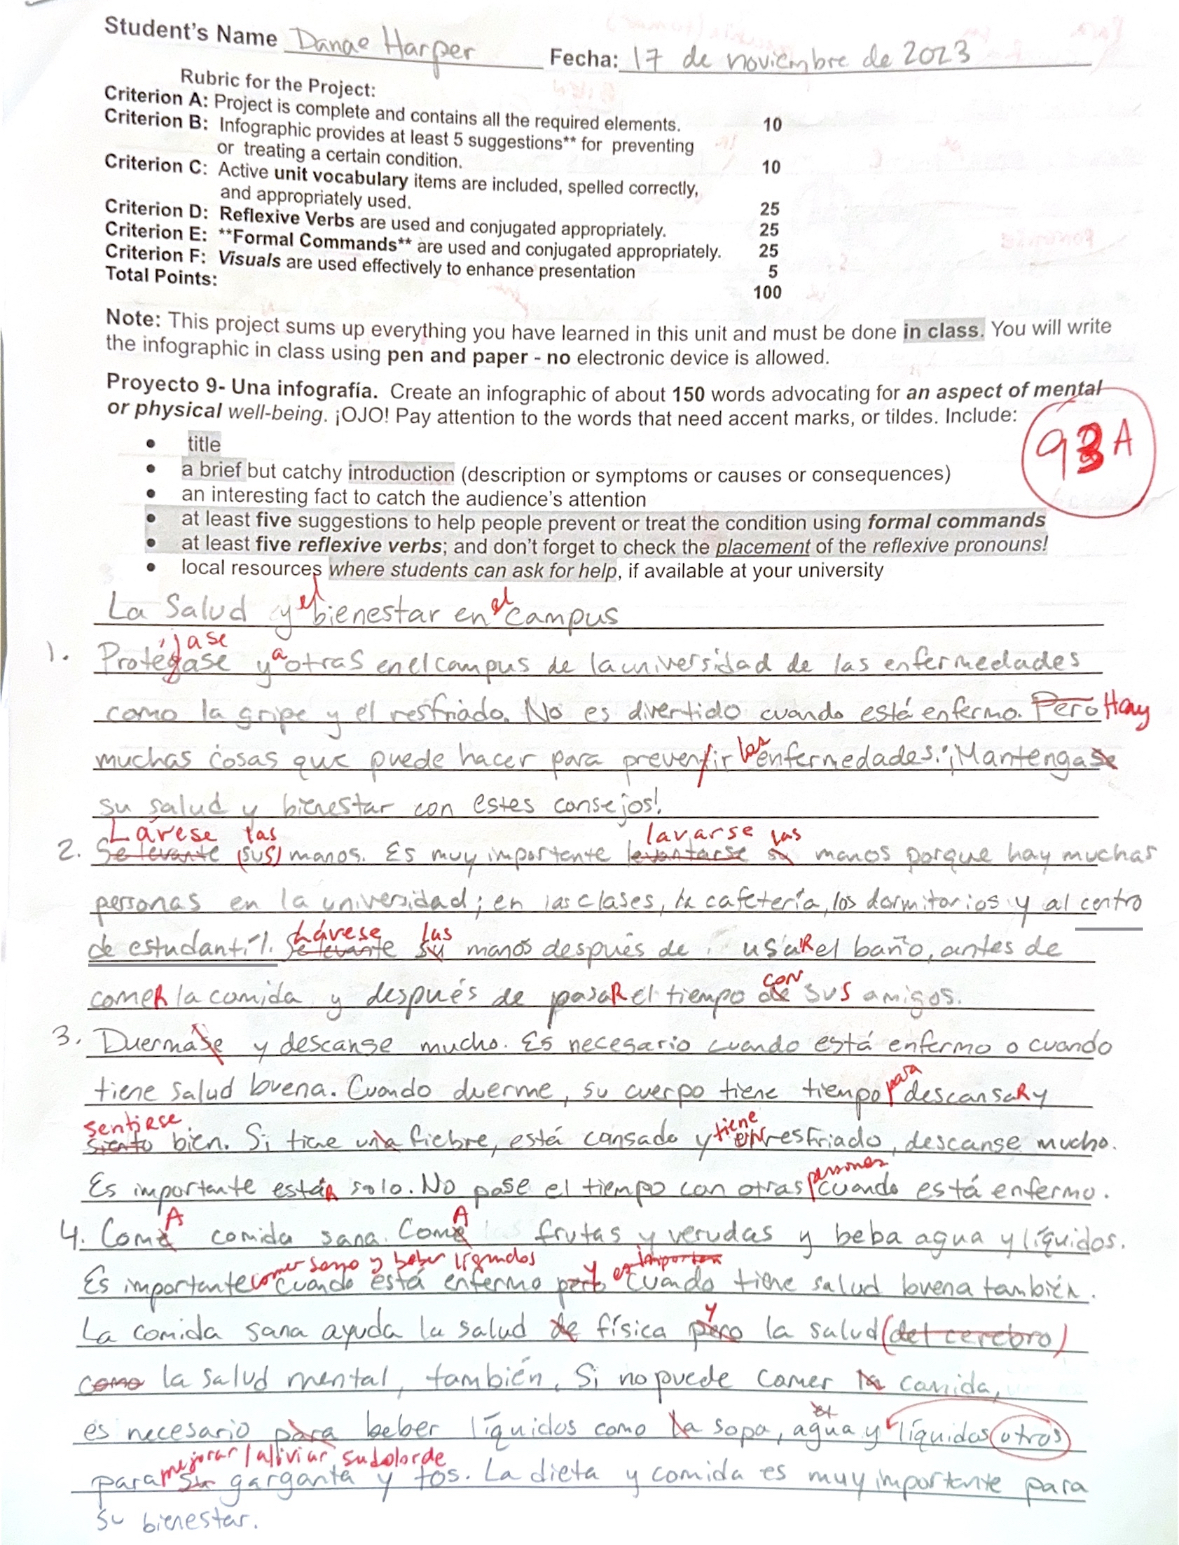 Student's Name Danae Harper Fecha: 17 de noviembre de 2023
Rubric for the Project:
Criterion A: Project is complete and contains all the required elements. 10
Criterion B: Infographic provides at least 5 suggestions** for preventing
or treating a certain condition. 10
Criterion C: Active unit vocabulary items are included, spelled correctly,
and appropriately used. 25
Criterion D: Reflexive Verbs are used and conjugated appropriately. 25
Criterion E: **Formal Commands** are used and conjugated appropriately. 25
Criterion F: Visuals are used effectively to enhance presentation 5
Total Points: 100
Note: This project sums up everything you have learned in this unit and must be done in class. You will write
the infographic in class using pen and paper - no electronic device is allowed.
Proyecto 9- Una infografía. Create an infographic of about 150 words advocating for an aspect of mental
or physical well-being. ¡OJO! Pay attention to the words that need accent marks, or tildes. Include:
93 A
• title
• a brief but catchy introduction (description or symptoms or causes or consequences)
• an interesting fact to catch the audience's attention
• at least five suggestions to help people prevent or treat the condition using formal commands
• at least five reflexive verbs; and don't forget to check the placement of the reflexive pronouns!
• local resources where students can ask for help, if available at your university
el el
La Salud y bienestar en campus
jase a
1. Protégase y otras en el campus de la universidad de las enfermedades
como la gripe y el resfriado. No es divertido cuando está enfermo. Pero Hay
las
muchas cosas que puede hacer para prevenir enfermedades: ¡Mantengase
su salud y bienestar con estes consejos!
Lávese las lavarse las
2. Se levante (sus) manos. Es muy importante levantarse su manos porque hay muchas
personas en la universidad; en las clases, la cafetería, los dormitorios y al centro
Lávese las
de estudantil. Se levante su manos después de usaRel baño, antes de
con
comeR la comida y después de pasaR el tiempo de sus amigos.
3. Duermase y descanse mucho. Es necesario cuando está enfermo o cuando
para
tiene salud buena. Cuando duerme, su cuerpo tiene tiempo descansaR y
sentirse tiene
siento bien. Si tiene una fiebre, está cansado y resfriado, descanse mucho.
personas
Es importante estáR solo. No pase el tiempo con otras cuando está enfermo.
A A
4. Come comida sana. Come frutas y verudas y beba agua y líquidos.
comer sano y beber líquidos y es importan
Es importante cuando está enfermo pero cuando tiene salud buena también.
y
La comida sana ayuda la salud de física pero la salud (del cerebro)
como la salud mental, también. Si no puede comer la comida,
el
es necesario para beber líquidos como la sopa, agua y líquidos otros
mejorar/aliviar su dolor de
para su garganta y tos. La dieta y comida es muy importante para
su bienestar.